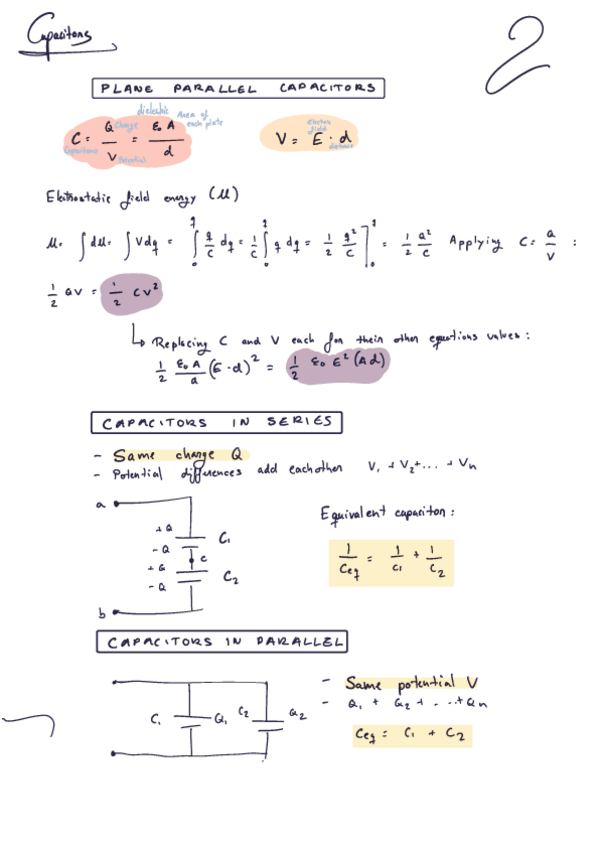 Capacitors
2
PLANE PARALLEL CAPACITORS
C = Q / V = ε₀ A / d
Capacitance
Charge
Potential
dielectric
Area of each plate
V = E · d
Electric field
distance
Electrostatic field energy (U)
U = ∫ dU = ∫ V dq = ∫₀^q q/c dq = 1/c ∫₀^q q dq = 1/2 q²/c ]₀^q = 1/2 Q²/c Applying C = Q/V :
1/2 QV = 1/2 CV²
↳ Replacing C and V each for their other equations values:
1/2 ε₀ A / d (E · d)² = 1/2 ε₀ E² (Ad)
CAPACITORS IN SERIES
- Same charge Q
- Potential differences add eachother V₁ + V₂ + ... + Vn
a
+Q
-Q
+Q
-Q
C₁
c
C₂
b
Equivalent capacitor:
1/Ceq = 1/C₁ + 1/C₂
CAPACITORS IN PARALLEL
C₁ Q₁ C₂ Q₂
- Same potential V
- Q₁ + Q₂ + ... + Qn
Ceq = C₁ + C₂